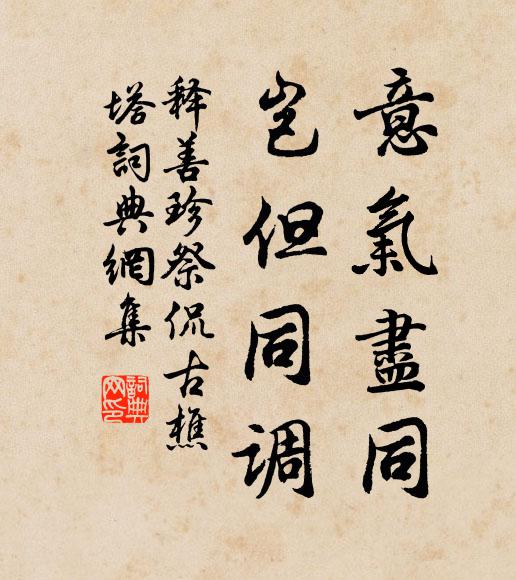 意氣盡同
豈但同調
释善珍祭侃古樵
塔詞典網集
詞典
网印